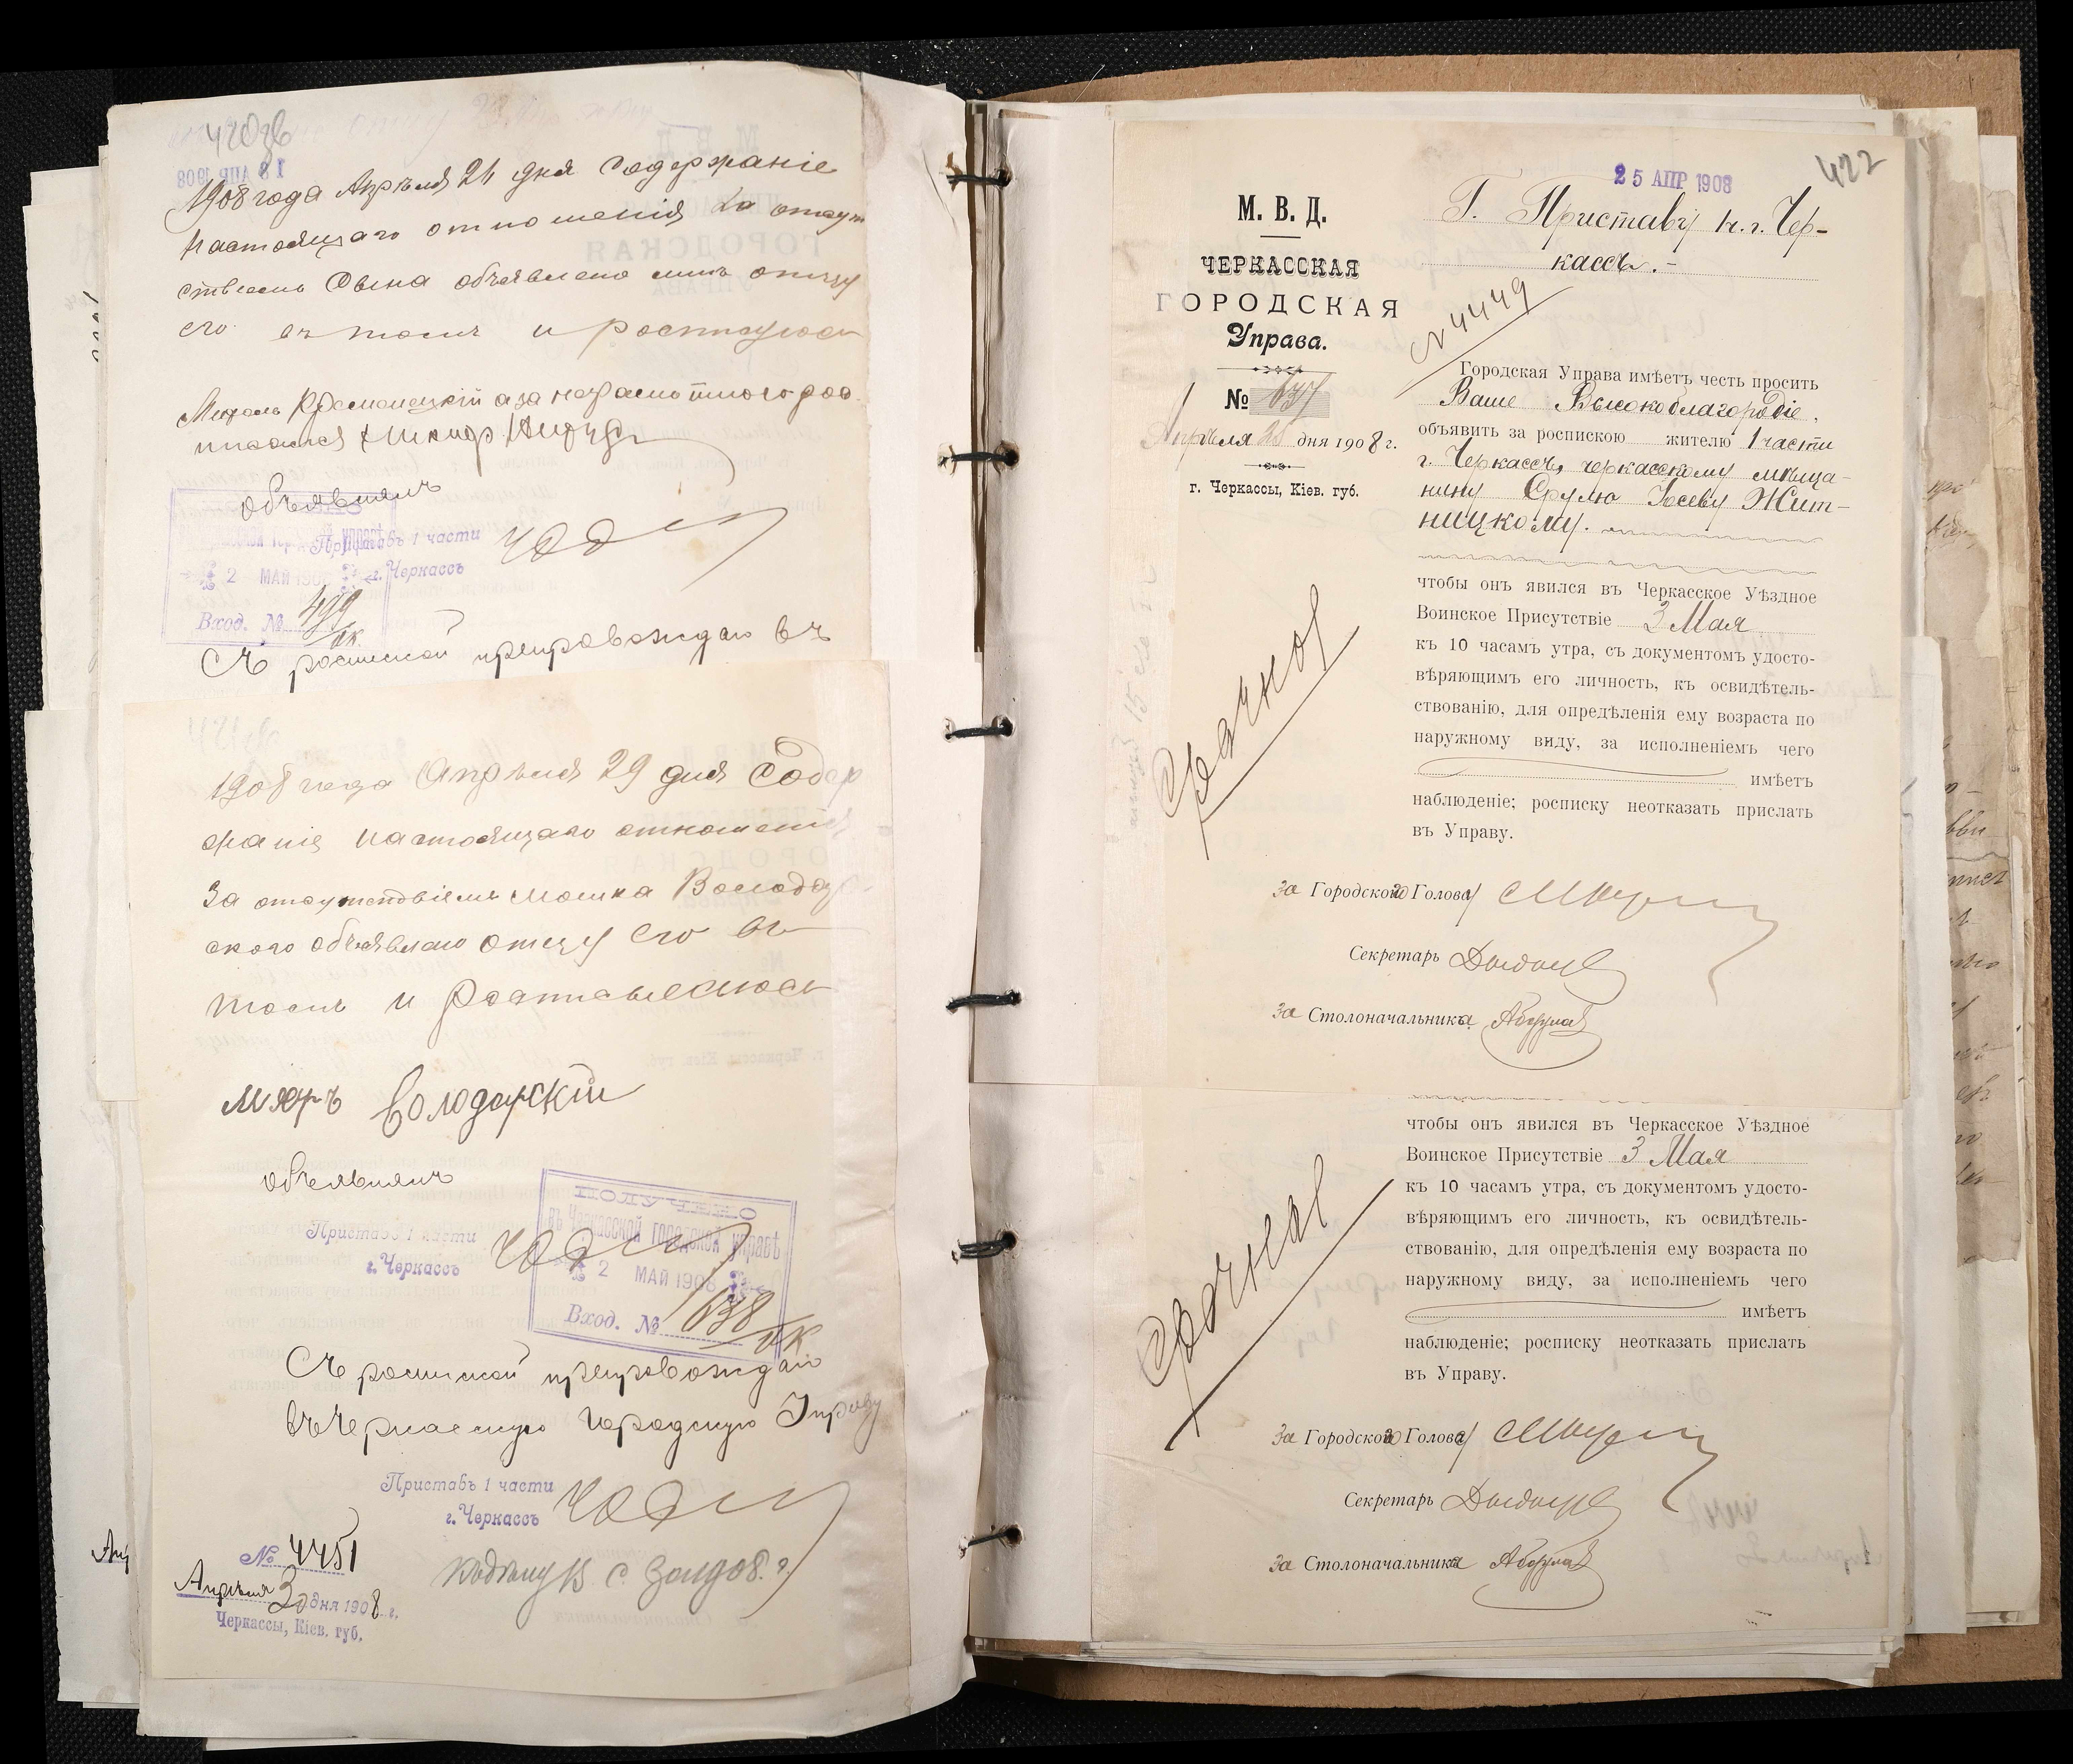 420об
18 АПР 1908
1908 года Апреля 24 дня Содержаніе
настоящаго отношенія за отсут
ствіемъ Сына объявлено мнѣ отцу
его въ томъ и роспишусь
Кременецкій а за неграмотного рос
писался
объявилъ
Приставъ 1 части
г. Черкассъ
2 МАЙ 1908
Вход. № 499
Съ роспиской препровождаю въ
1908 года Апреля 29 дня Содер
жаніе настоящаго отношенія
За отсутствіемъ Мошка Володар
ского объявлено отцу его въ
томъ и
Володарскій
объявилъ
Приставъ 1 части
г. Черкассъ
ПОЛУЧЕНО
въ Черкасской городской управѣ
2 МАЙ 1908
Вход. № 638
Съ роспиской препровождаю
въ Черкасскую Городскую Управу
Приставъ 1 части
г. Черкассъ
№ 4451
Апреля 30 дня 1908 г.
Черкассы, Кіев. губ.
25 АПР 1908
422
М. В. Д.
ЧЕРКАССКАЯ
ГОРОДСКАЯ
Управа.
№ 637
Апрѣля 25 дня 1908 г.
г. Черкассы, Кіев. губ.
Г. Приставу 1 ч. г. Чер-
кассъ.-
№ 4449
Городская Управа имѣетъ честь просить
Ваше Высокоблагородіе,
объявить за роспискою жителю 1 части
г. Черкассъ, черкасскому мѣща-
нину Срулю Іосеву Жит-
ницкому.
чтобы онъ явился въ Черкасское Уѣздное
Воинское Присутствіе 3 Мая
къ 10 часамъ утра, съ документомъ удосто-
вѣряющимъ его личность, къ освидѣтель-
ствованію, для опредѣленія ему возраста по
наружному виду, за исполненіемъ чего
имѣетъ
наблюденіе; росписку неотказать прислать
въ Управу.
Срочное
За Городского Голову
Секретарь
За Столоначальника
чтобы онъ явился въ Черкасское Уѣздное
Воинское Присутствіе 3 Мая
къ 10 часамъ утра, съ документомъ удосто-
вѣряющимъ его личность, къ освидѣтель-
ствованію, для опредѣленія ему возраста по
наружному виду, за исполненіемъ чего
имѣетъ
наблюденіе; росписку неотказать прислать
въ Управу.
Срочное
За Городского Голову
Секретарь
За Столоначальника